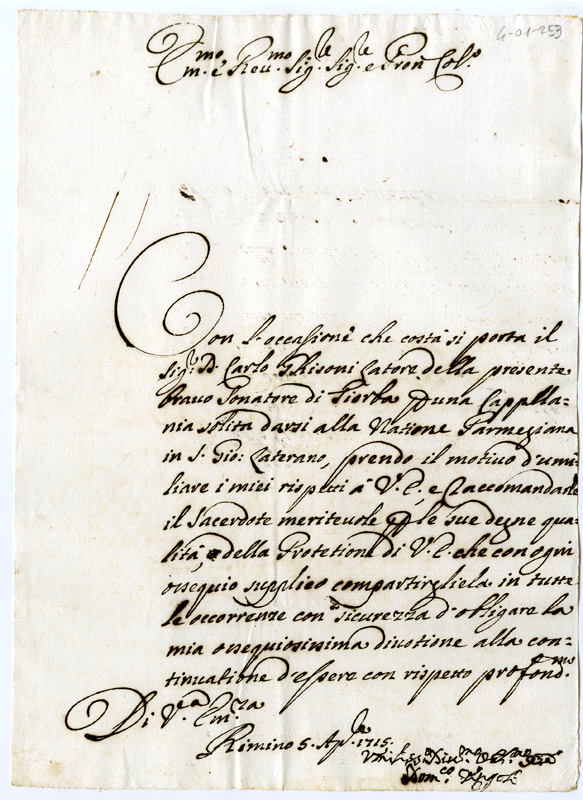 4-01-253
Em.mo e Reu.mo Sig.re Sig.re e Pron Col.o
Con l'occasione che costà si porta il
Sig.r D. Carlo Ghisoni Latore della presente
bravo Sonatore di Tiorba p una Cappella=
nia solita darsi alla Natione Parmegiana
in S. Gio: Laterano, prendo il motivo d'umi=
liare i miei rispetti à V.E., e raccomandarle
il Sacerdote meritevole p le sue degne qua
lità, e della Protetione di V.E. che con ogni
ossequio supplico compartirgliela in tutte
le occorrenze con sicurezza d'obligare la
mia ossequiosissima divotione alla con=
tinuatione d'essere con rispetto profond.mo
Di V.ra Em.za
Rimino 5. Ap.le 1715.
Dom.co